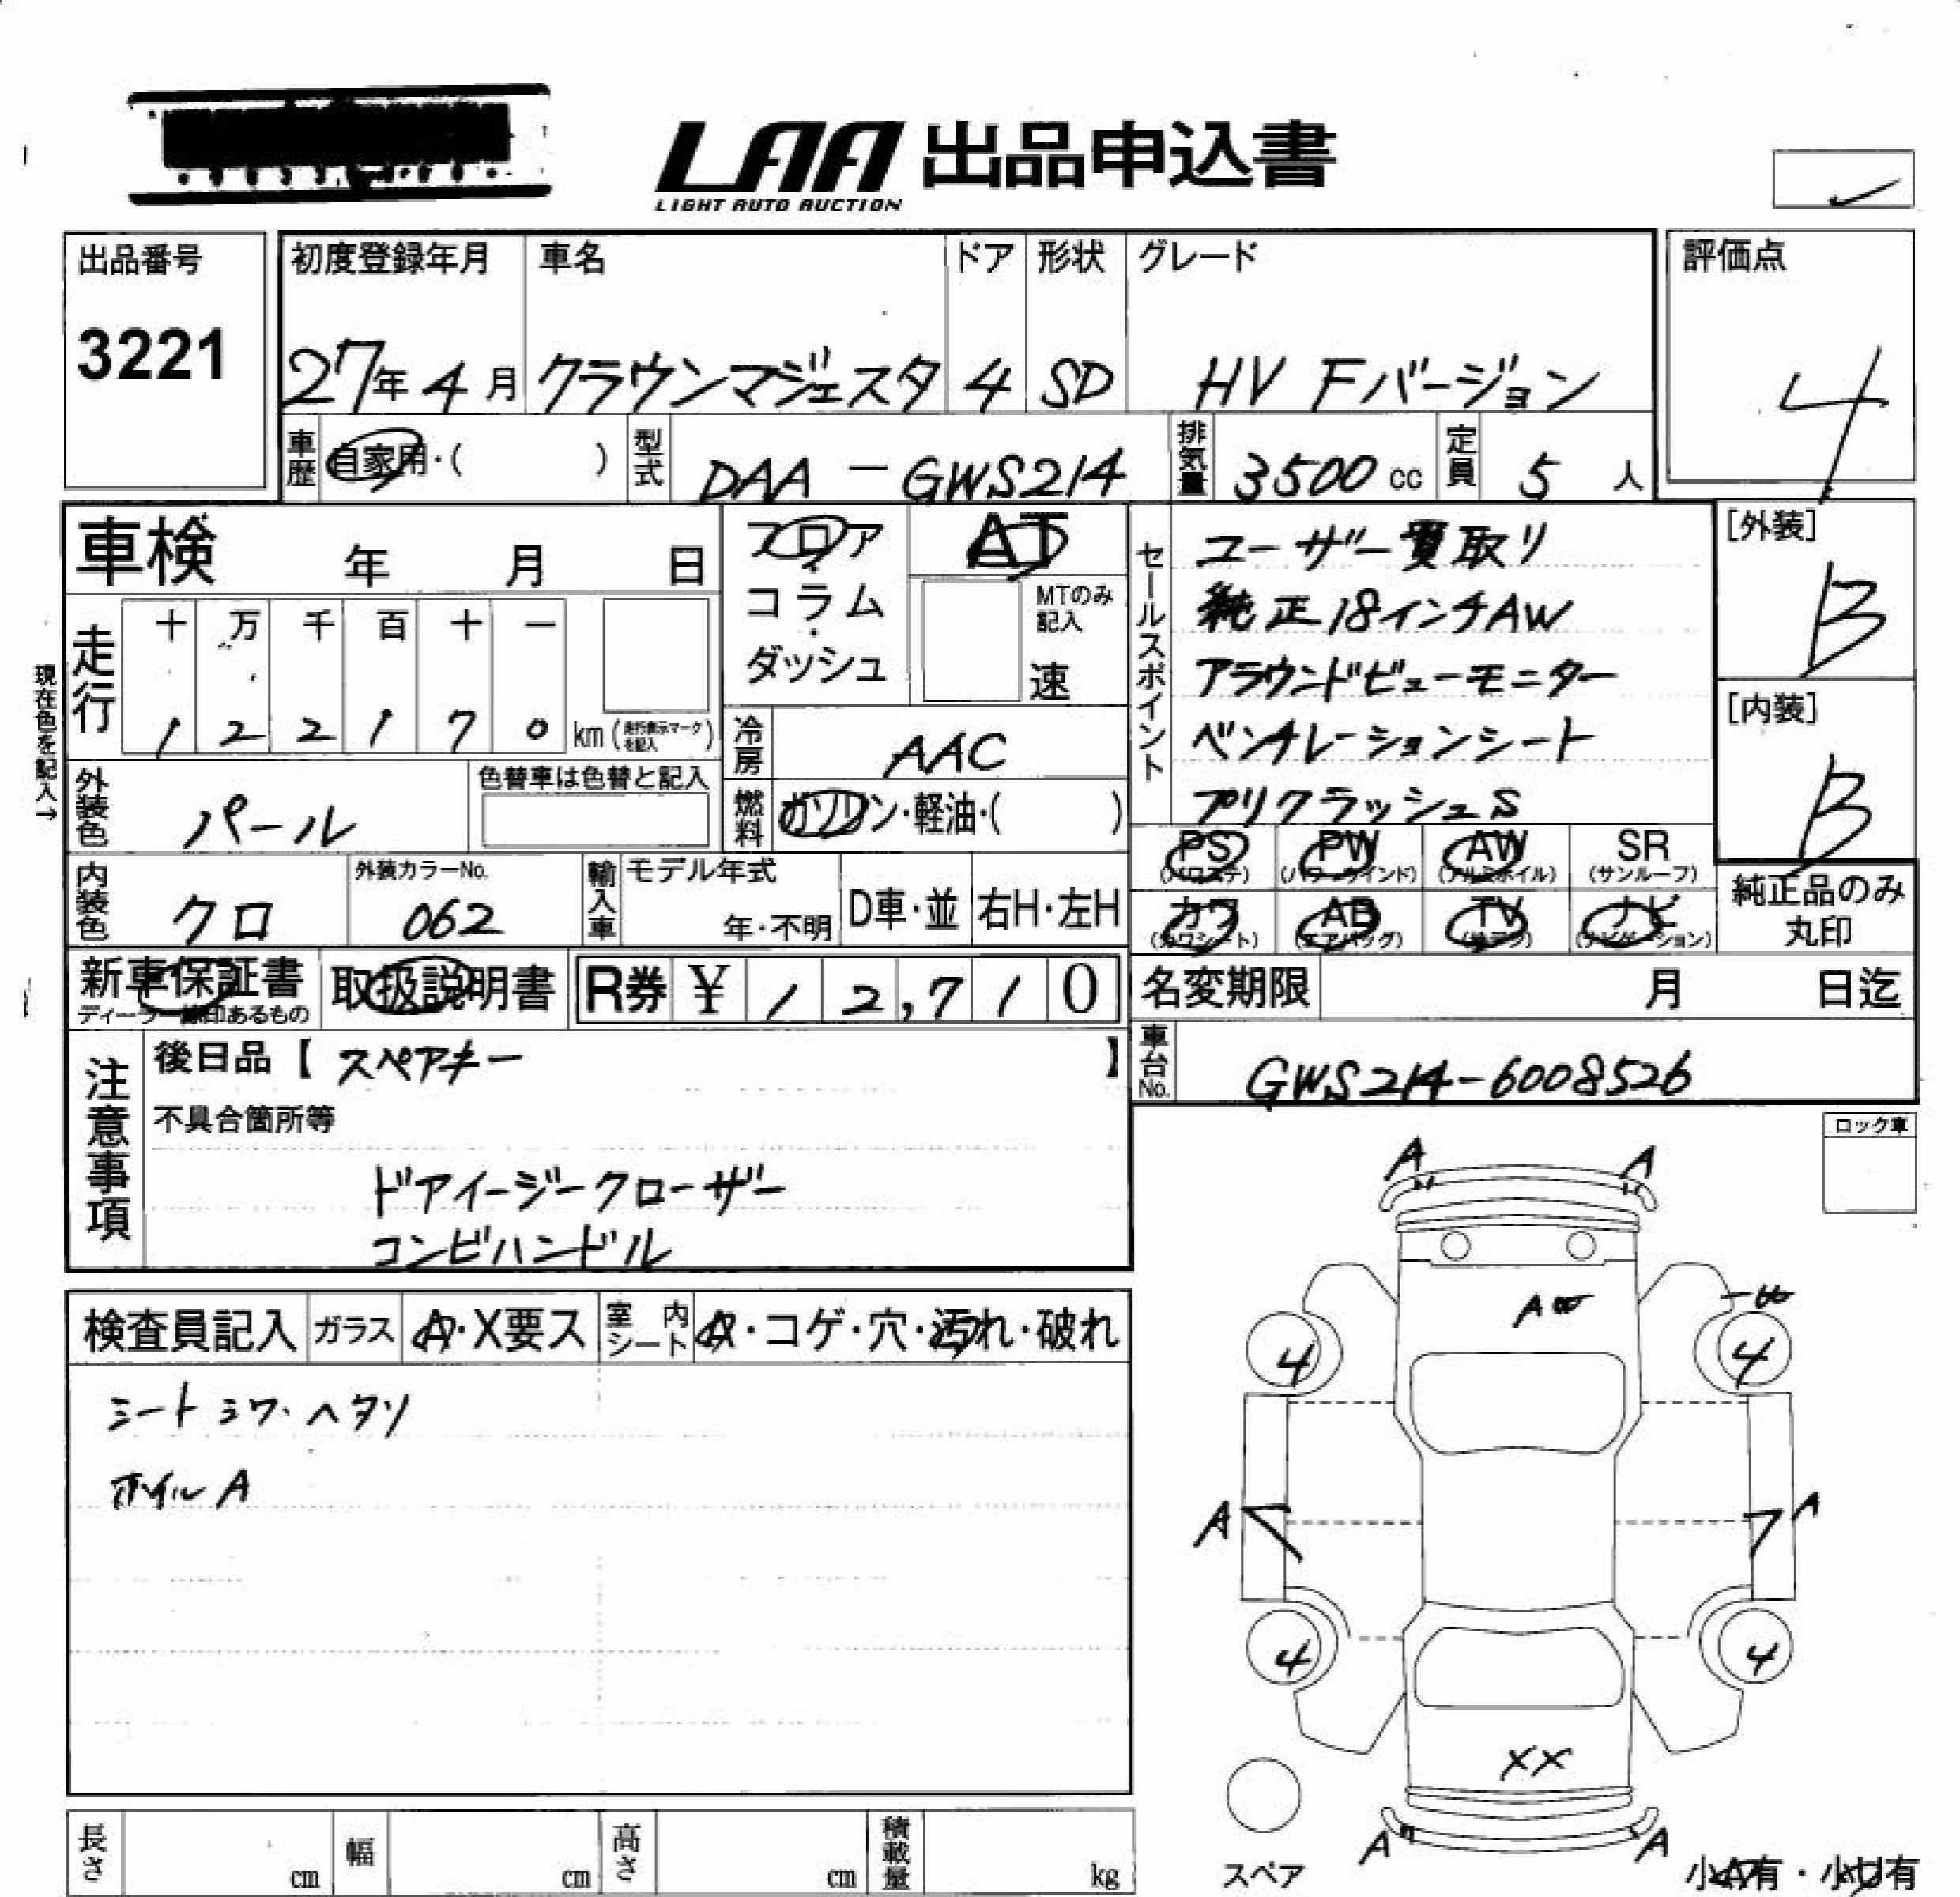 LAA 出品申込書
LIGHT AUTO AUCTION
出品番号
3221
初度登録年月
27年4月
車名
クラウンマジェスタ
ドア
4
形状
SD
グレード
HV Fバージョン
評価点
4
車歴
自家用・( )
型式
DAA-GWS214
排気量
3500 cc
定員
5 人
車検 年 月 日
現在色を記入→
走行
十 万 千 百 十 一
1 2 2 1 7 0 km (走行表示マークを記入)
フロア・コラム・ダッシュ
AT
MTのみ記入
速
冷房
AAC
燃料
ガソリン・軽油・( )
外装色
パール
色替車は色替と記入
内装色
クロ
外装カラーNo.
062
輸入車
モデル年式
年・不明
D車・並
右H・左H
セールスポイント
ユーザー買取り
純正18インチAW
アラウンドビューモニター
ベンチレーションシート
プリクラッシュS
[外装]
B
[内装]
B
PS
(パワステ)
PW
(パワーウインド)
AW
(アルミホイル)
SR
(サンルーフ)
カワ
(カワシート)
AB
(エアバッグ)
TV
(地デジ)
ナビ
(ナビゲーション)
純正品のみ
丸印
新車保証書
取扱説明書
R券 ¥ 12,710
名変期限 月 日迄
車台No.
GWS214-6008526
注意事項
後日品【 スペアキー 】
不具合箇所等
ドアイージークローザー
コンビハンドル
ロック車
検査員記入
ガラス
A・X要ス
室内シート
A・コゲ・穴・汚れ・破れ
シートシワ・ヘタリ
ホイルA
A A
4 4
A A
4 4
XX
A A
スペア
小A有・小U有
長さ cm
幅 cm
高さ cm
積載量 kg